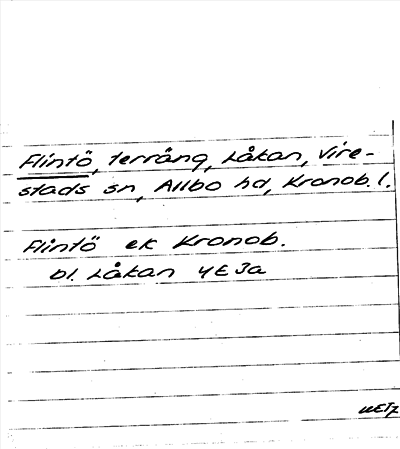 Flintö, terräng, Låkan, Vire-
stads sn, Allbo hd, Kronob. l.
Flintö ek Kronob.
bl. Låkan 4E 3a